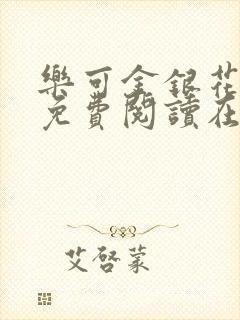 樂可金銀花
免費閱讀在
艾啓蒙